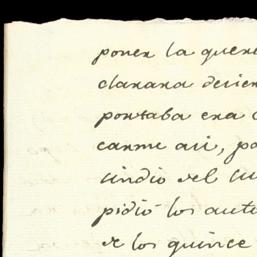 poner la quere
clarara desier
portaba era
carme asi, pa
sindio del cu
pidió los aute
de los quince